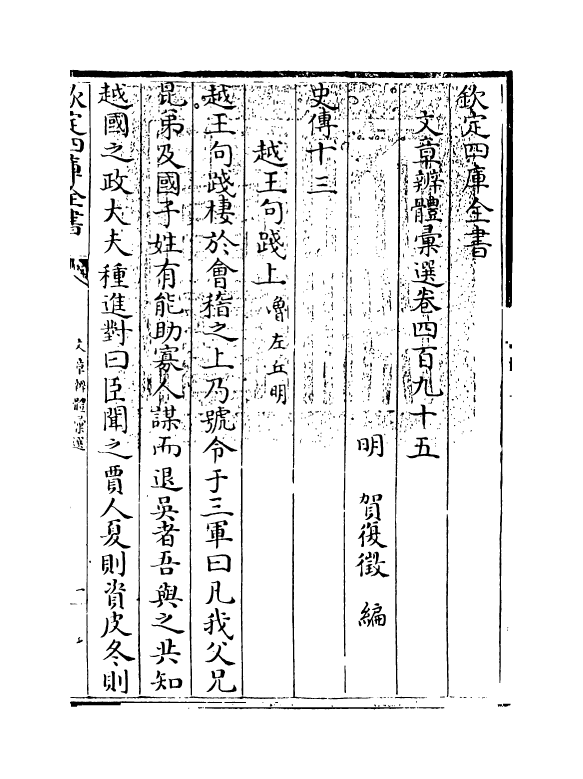 欽定四庫全書
文章辨體彙選卷四百九十五
明 賀復徵 編
史傳十三
越王句踐上 魯左丘明
越王句踐棲於會稽之上乃號令于三軍曰凡我父兄
昆弟及國子姓有能助寡人謀而退吳者吾與之共知
越國之政大夫種進對曰臣聞之賈人夏則資皮冬則
欽定四庫全書
文章辨體彙選